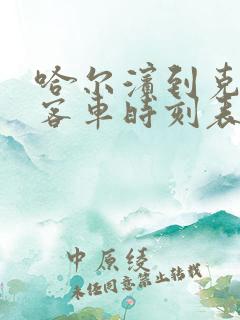 哈尔滨到克
客车时刻表
中原绫
未经同意禁止转载